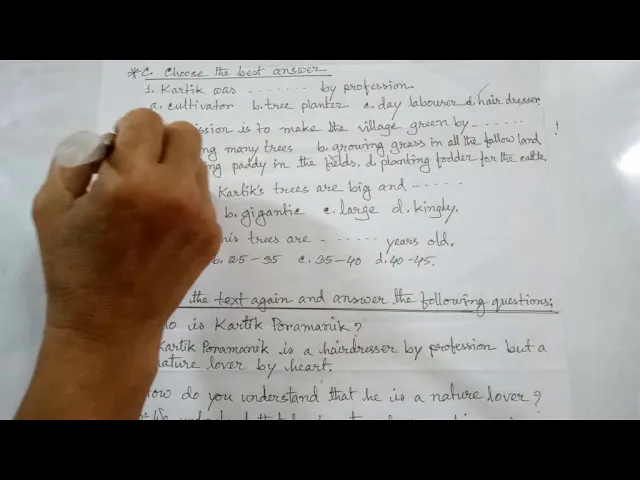 *C. Choose the best answer
1. Kartik was ........ by profession.
a. cultivator b. tree planter c. day labourer d. hair dresser.
is to make the village green by ......
many trees b. growing grass in all the fallow land
paddy in the fields, d. planting fodder for the cattle.
Kartik's trees are big and ......
b. gigantic c. large d. kingly.
his trees are ...... years old.
b. 25-35 c. 35-40 d. 40-45.
the text again and answer the following questions:
is Kartik Poramanik?
Kartik Poramanik is a hairdresser by profession but a
nature lover by heart.
How do you understand that he is a nature lover?